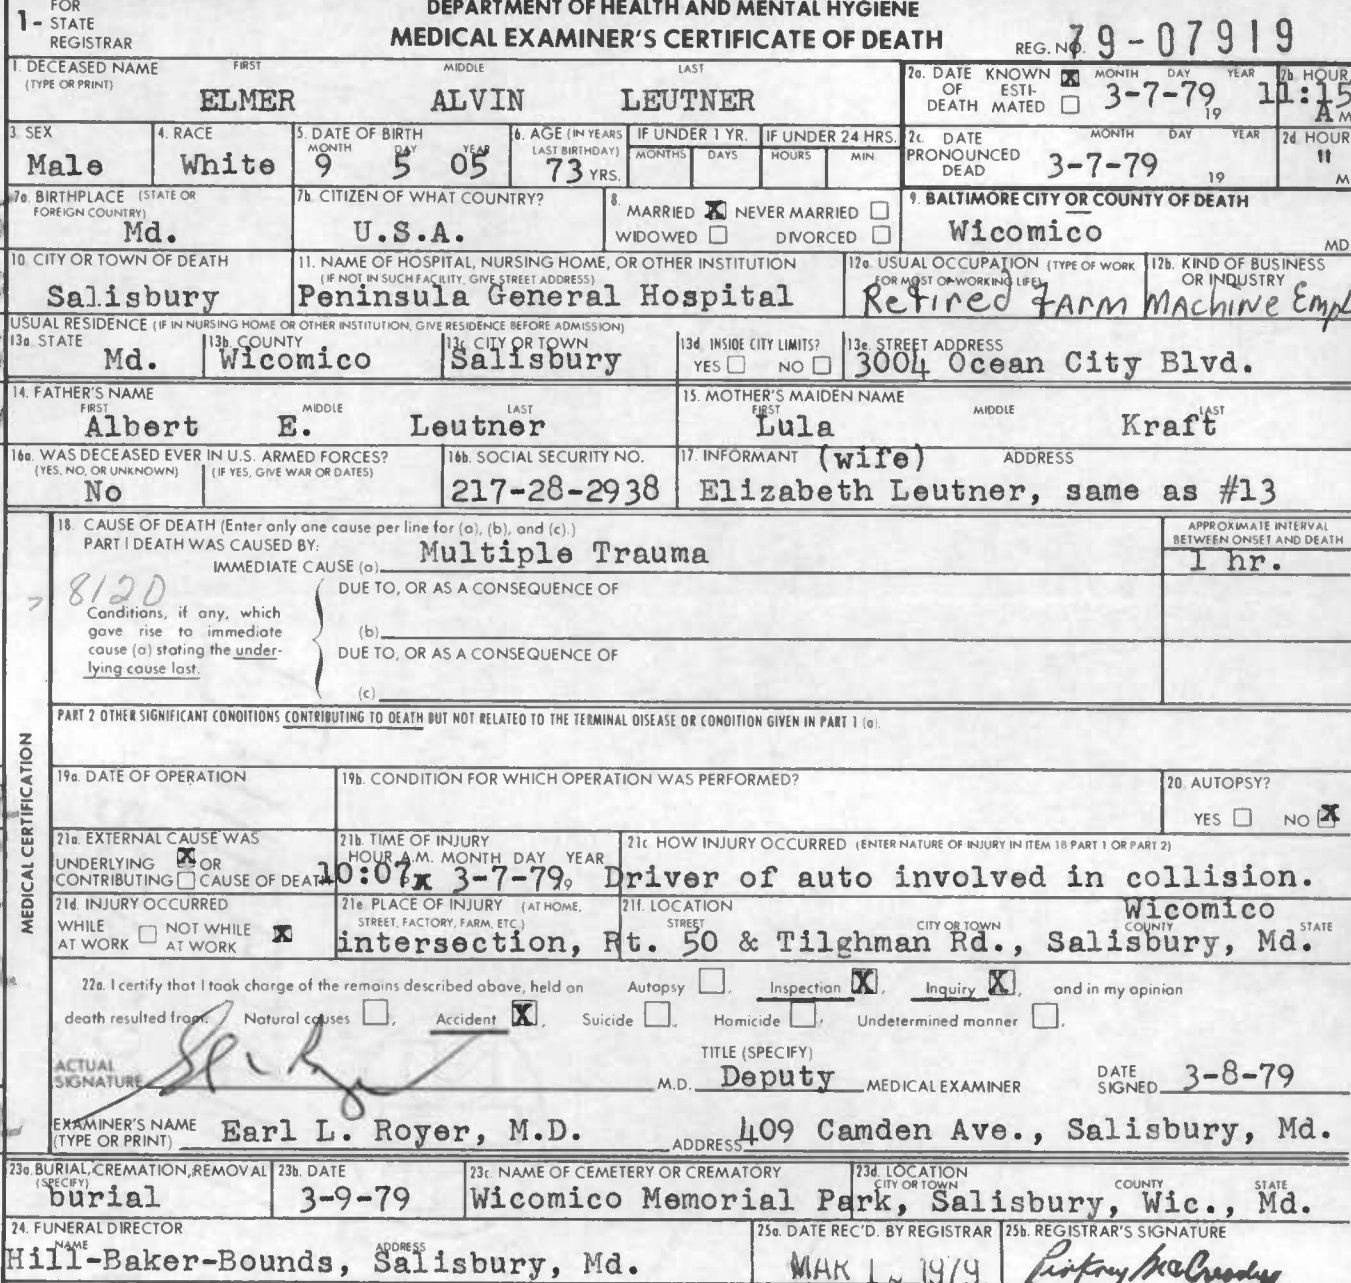 FOR
1- STATE
REGISTRAR
DEPARTMENT OF HEALTH AND MENTAL HYGIENE
MEDICAL EXAMINER'S CERTIFICATE OF DEATH
REG. NO. 79-07919
1. DECEASED NAME FIRST MIDDLE LAST
(TYPE OR PRINT)
ELMER ALVIN LEUTNER
2a. DATE KNOWN X MONTH DAY YEAR 2b. HOUR
OF ESTI-
DEATH MATED 3-7-79, 19 11:15 A M
3. SEX 4. RACE 5. DATE OF BIRTH 6. AGE (IN YEARS IF UNDER 1 YR. IF UNDER 24 HRS.
MONTH DAY YEAR LAST BIRTHDAY) MONTHS DAYS HOURS MIN.
Male White 9 5 05 73 YRS.
2c. DATE MONTH DAY YEAR 2d HOUR
PRONOUNCED
DEAD 3-7-79 19 " M
7a. BIRTHPLACE (STATE OR
FOREIGN COUNTRY)
Md.
7b. CITIZEN OF WHAT COUNTRY?
U.S.A.
8. MARRIED X NEVER MARRIED
WIDOWED DIVORCED
9. BALTIMORE CITY OR COUNTY OF DEATH
Wicomico MD
10. CITY OR TOWN OF DEATH
Salisbury
11. NAME OF HOSPITAL, NURSING HOME, OR OTHER INSTITUTION
(IF NOT IN SUCH FACILITY, GIVE STREET ADDRESS)
Peninsula General Hospital
12a. USUAL OCCUPATION (TYPE OF WORK
FOR MOST OF WORKING LIFE)
Retired
12b. KIND OF BUSINESS
OR INDUSTRY
Farm Machine Empl
USUAL RESIDENCE (IF IN NURSING HOME OR OTHER INSTITUTION, GIVE RESIDENCE BEFORE ADMISSION)
13a. STATE 13b. COUNTY 13c. CITY OR TOWN 13d. INSIDE CITY LIMITS? 13e. STREET ADDRESS
Md. Wicomico Salisbury YES NO 3004 Ocean City Blvd.
14. FATHER'S NAME
FIRST MIDDLE LAST
Albert E. Leutner
15. MOTHER'S MAIDEN NAME
FIRST MIDDLE LAST
Lula Kraft
16a. WAS DECEASED EVER IN U.S. ARMED FORCES?
(YES, NO, OR UNKNOWN) (IF YES, GIVE WAR OR DATES)
No
16b. SOCIAL SECURITY NO.
217-28-2938
17. INFORMANT (wife) ADDRESS
Elizabeth Leutner, same as #13
MEDICAL CERTIFICATION
18. CAUSE OF DEATH (Enter only one cause per line for (a), (b), and (c).)
PART I DEATH WAS CAUSED BY:
IMMEDIATE CAUSE (a) Multiple Trauma
APPROXIMATE INTERVAL
BETWEEN ONSET AND DEATH
1 hr.
8120
Conditions, if any, which
gave rise to immediate
cause (a) stating the under-
lying cause last.
DUE TO, OR AS A CONSEQUENCE OF
(b)
DUE TO, OR AS A CONSEQUENCE OF
(c)
PART 2 OTHER SIGNIFICANT CONDITIONS CONTRIBUTING TO DEATH BUT NOT RELATED TO THE TERMINAL DISEASE OR CONDITION GIVEN IN PART 1 (a).
19a. DATE OF OPERATION 19b. CONDITION FOR WHICH OPERATION WAS PERFORMED? 20. AUTOPSY?
YES NO X
21a. EXTERNAL CAUSE WAS
UNDERLYING X OR
CONTRIBUTING CAUSE OF DEATH
21b. TIME OF INJURY
HOUR A.M. MONTH DAY YEAR
10:07 x 3-7-79,
21c HOW INJURY OCCURRED (ENTER NATURE OF INJURY IN ITEM 18 PART 1 OR PART 2)
Driver of auto involved in collision.
21d. INJURY OCCURRED
WHILE NOT WHILE
AT WORK AT WORK X
21e. PLACE OF INJURY (AT HOME,
STREET, FACTORY, FARM, ETC.)
intersection,
21f. LOCATION Wicomico
STREET CITY OR TOWN COUNTY STATE
Rt. 50 & Tilghman Rd., Salisbury, Md.
22a. I certify that I took charge of the remains described above, held an Autopsy , Inspection X, Inquiry X, and in my opinion
death resulted from: Natural causes , Accident X, Suicide , Homicide , Undetermined manner ,
ACTUAL
SIGNATURE M.D.
TITLE (SPECIFY)
Deputy MEDICAL EXAMINER
DATE
SIGNED 3-8-79
EXAMINER'S NAME
(TYPE OR PRINT) Earl L. Royer, M.D. ADDRESS 409 Camden Ave., Salisbury, Md.
23a. BURIAL, CREMATION, REMOVAL 23b. DATE 23c. NAME OF CEMETERY OR CREMATORY 23d. LOCATION
(SPECIFY) CITY OR TOWN COUNTY STATE
burial 3-9-79 Wicomico Memorial Park, Salisbury, Wic., Md.
24. FUNERAL DIRECTOR
NAME ADDRESS
Hill-Baker-Bounds, Salisbury, Md.
25a. DATE REC'D. BY REGISTRAR
MAR 1 1979
25b. REGISTRAR'S SIGNATURE